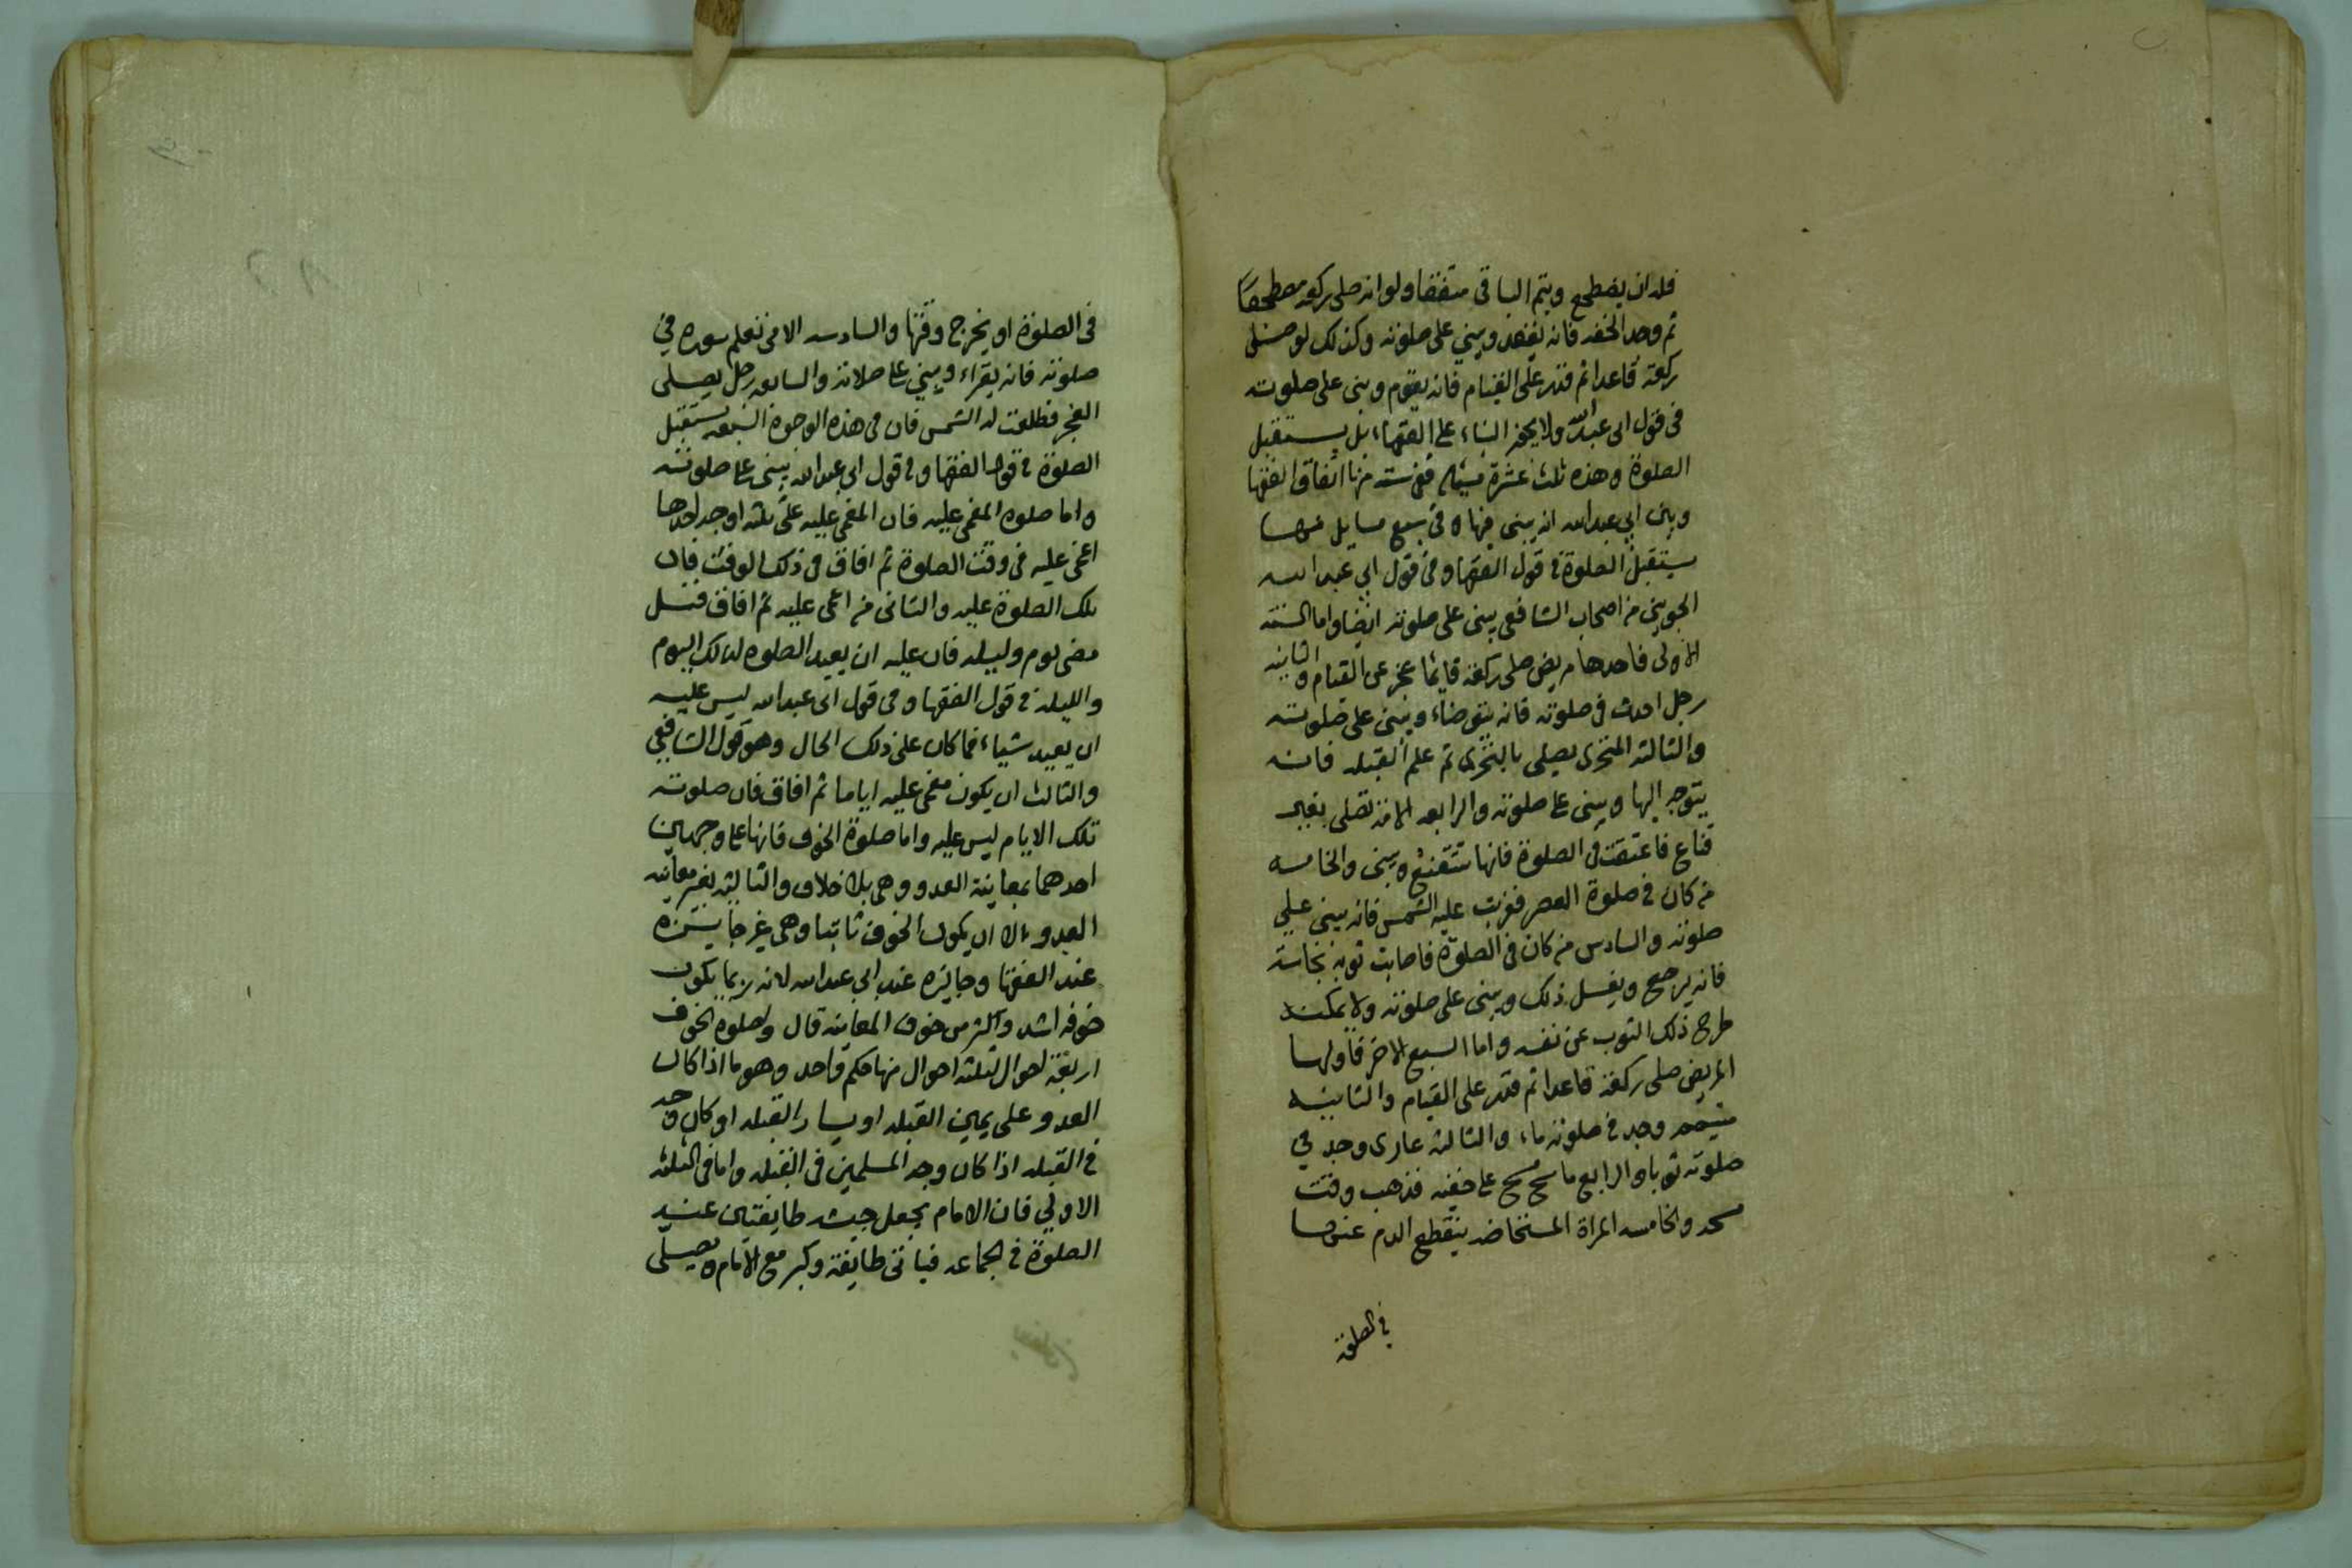 فله ان يضطجع ويتم الباقي متنفلا ولو انه صلى ركعة مضطجعا
ثم وجد الخفه فانه يقعد ويبني على صلوته وكذلك لو صلى
ركعة قاعدا ثم قدر على القيام فانه يقوم وبنى على صلوته
في قول ابي عبد الله ولا يجوز البناء على الفقهاء بل يستقبل
الصلوة وهذه ثلث عشرة مسئلة ففي ستة منها اتفاق الفقها
وبين ابي عبد الله انه يبني فيها وفي سبع مسايل منها
يستقبل الصلوة في قول الفقها وفي قول ابي عبد الله
الجويني من اصحاب الشافعي يبني على صلوته ايضا واما الستة
الاولى فاحدها مريض صلى ركعة قايما عجز عن القيام والثانية
رجل احدث في صلوته فانه يتوضاء ويبني على صلوته
والثالثه المتحرى يصلي بالتحرى ثم علم القبله فانه
يتوجه اليها ويبني على صلوته والرابعه الامة تصلي بغير
قناع فاعتقت في الصلوة فانها تتقنع وتبني والخامسه
من كان في صلوة العصر فغربت عليه الشمس فانه يبني على
صلوته والسادس من كان في الصلوة فاصابت ثوبه نجاسة
فانه يرجع ويغسل ذلك ويبني على صلوته ولا يمكنه
طرح ذلك الثوب عن نفسه واما السبع الاخر فاولها
المريض صلى ركعة قاعدا ثم قدر على القيام والثانيه
متيمم وجد في صلوته ماء والثالثه عارى وجد في
صلوته ثوبا والرابع ماسح مسح على خفيه فذهب وقت
مسحه والخامسه المراة المستحاضه ينقطع الدم عنها
في الصلوة
في الصلوة او يخرج وقتها والسادسه الامي تعلم سوره في
صلوته فانه يقراء ويبني على صلاته والسابعه رجل يصلي
الفجر فطلعت له الشمس فان في هذه الوجوه السبعه يستقبل
الصلوة في قول الفقها وفي قول ابي عبد الله يبني على صلوته
واما صلوه المغمى عليه فان المغمى عليه على ثلثة اوجه احدها
اغمى عليه في وقت الصلوة ثم افاق في ذلك الوقت فان
تلك الصلوة عليه والثاني من اغمى عليه ثم افاق قبل
مضى يوم وليله فان عليه ان يعيد الصلوه لذلك اليوم
والليله في قول الفقها وفي قول ابي عبد الله ليس عليه
ان يعيد شيياء فما كان على ذلك الحال وهو قول الشافعي
والثالث ان يكون مغمى عليه اياما ثم افاق فان صلوته
تلك الايام ليس عليه واما صلوة الخوف فانها على وجهين
احدهما بمعاينة العدو وهي بلا خلاف والثالثه بغير معاينه
العدو الا ان يكون الخوف ثابتا وهي غير جايزه
عند الفقها وجايزه عند ابي عبد الله لانه ربما يكون
خوفه اشد واكثر من خوف المعاينة قال ولصلوه الخوف
اربعة احوال لثلثه احوال منها حكم واحد وهو ما اذا كان
العدو على يمين القبله او يسار القبله او كان وجه
في القبله اذا كان وجه المسلمين في القبله واما في الثلثه
الاولى فان الامام يجعل جيشه طايفتين عند
الصلوة في الجماعه فياتى طايفة وكبر مع الامام ويصلى